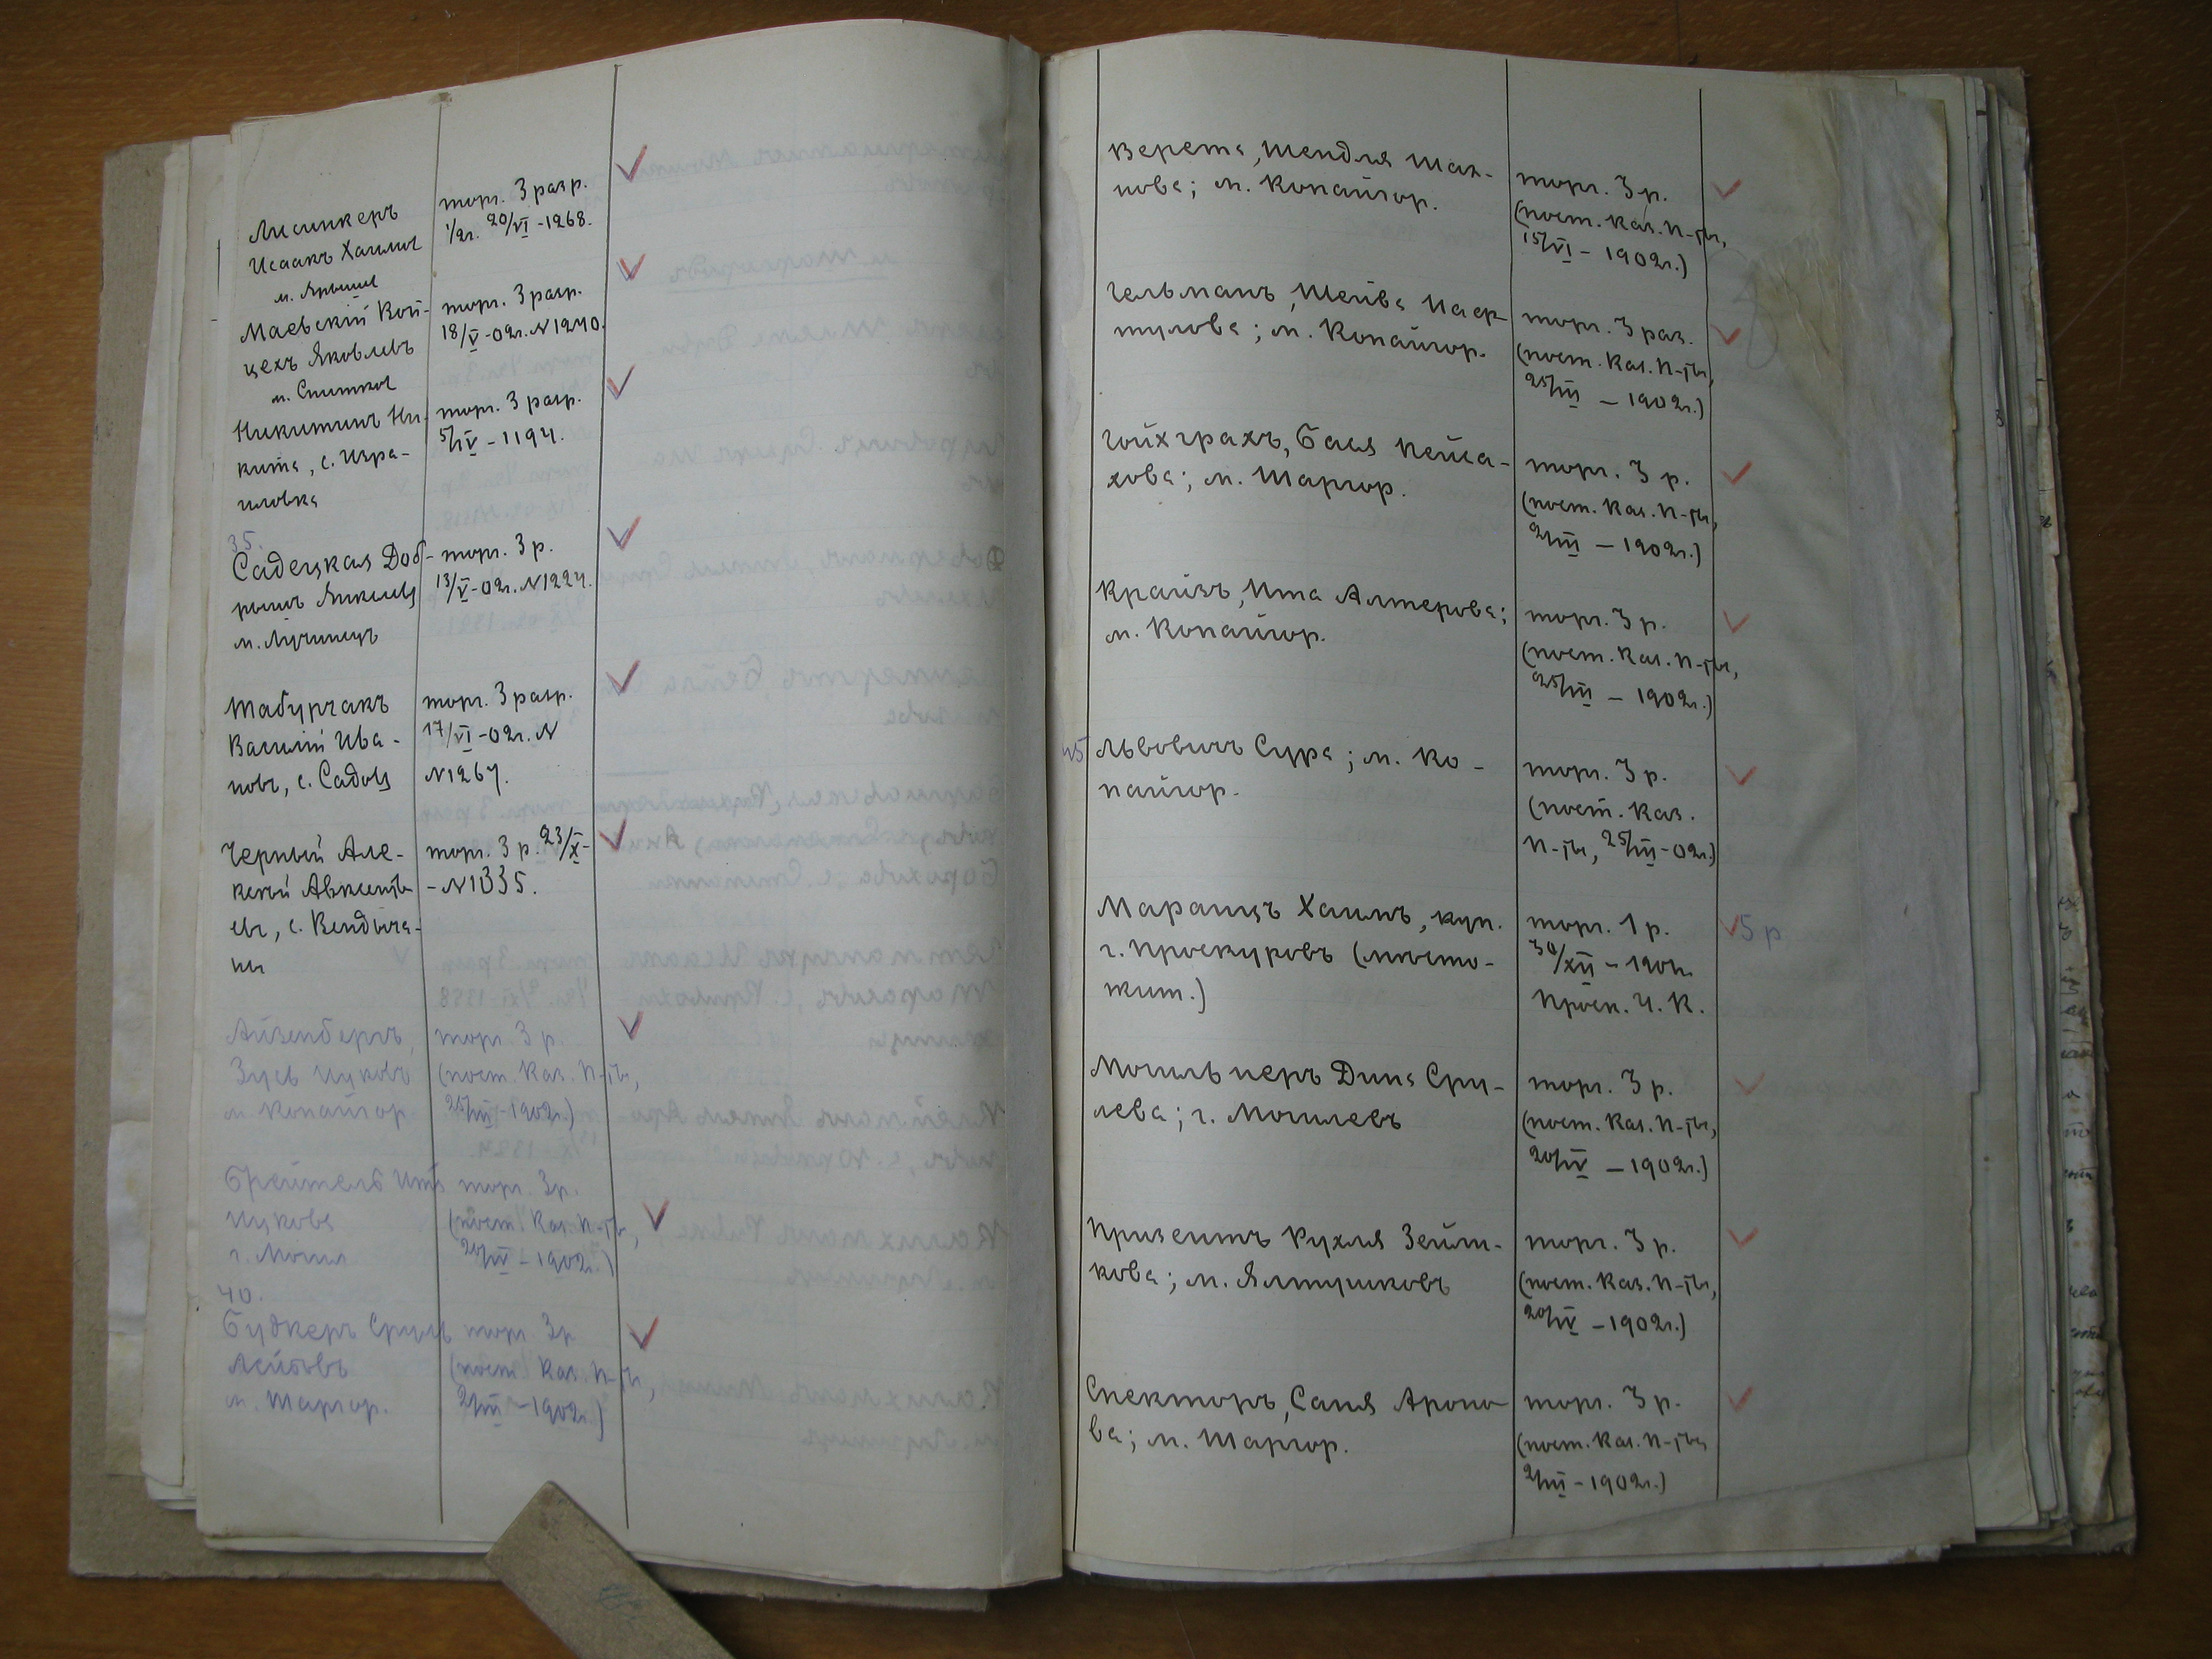 Лисинкеръ
Исаакъ Хаимов
м. Ярышев
торг. 3 разр.
1/2г. 20/VI -1268.
Маевскій Вой-
цехъ Яковлевъ
м. Снитков
торг. 3 разр.
18/V -02г. N1240.
Никитинъ Ни-
кита, с. Изра-
иловка
торг. 3 разр.
5/IV -1194.
35.
Садецкая Доб-
рышъ Янкелев
м. Лучинецъ
торг. 3 р.
13/V -02г. N1224.
Табурчакъ
Василій Ива-
новъ, с. Садов
торг. 3 разр.
17/VI -02г. N
N1264.
Черный Але-
ксѣй Авксентьѣ-
евъ, с. Вендыча-
ны
торг. 3 р. 23/X -
- N1335.
Айзенбергъ,
Зусь Ицковъ
м. Копайгор.
торг. 3 р.
(пост. Каз. П-ты,
25/III -1902г.)
Брейтель Ита
Ицкова
г. Могил
торг. 3 р.
(пост. Каз. П-ты,
20/IV -1902г.)
40.
Будкеръ Сруль
Лейбовъ
м. Шаргор.
торг. 3 р
(пост. Каз. П-ты,
2/III -1902г.)
Верета, Шендля Шах-
нова; м. Копайгор.
торг. 3 р.
(пост. Каз. П-ты,
15/VI - 1902г.)
Гельманъ, Шейва
тулова; м. Копайгор.
торг. 3 раз.
(пост. Каз. П-ты,
25/III - 1902г.)
Гойхграхъ, Бася Пейса-
хова; м. Шаргор.
торг. 3 р.
(пост. Каз. П-ты,
2/III - 1902г.)
Крайзъ, Ита Алтерова;
м. Копайгор.
торг. 3 р.
(пост. Каз. П-ты,
25/III - 1902г.)
45
Львовичъ Сура; м. Ко-
пайгор.
торг. 3 р.
(пост. Каз.
П-ты, 25/III -02г.)
Маранцъ Хаимъ, куп.
г. Проскуровъ (место-
жит.)
торг. 1 р.
30/XII - 1901г.
Проск. У. К.
5 р
Могильнеръ Дина Сру-
лева; г. Могилевъ
торг. 3 р.
(пост. Каз. П-ты,
20/IV - 1902г.)
Призентъ Рухля Зейли-
кова; м. Ялтушковъ
торг. 3 р.
(пост. Каз. П-ты,
20/IV - 1902г.)
Спекторъ, Сапя Ароно-
ва; м. Шаргор.
торг. 3 р.
(пост. Каз. П-ты,
2/III - 1902г.)